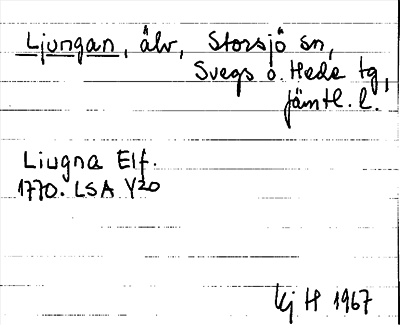 Ljungan, älv, Storsjö sn,
Svegs o. Hede tg,
Jämtl. l.
Liugna Elf.
1770. LSA Y20
kj H 1967